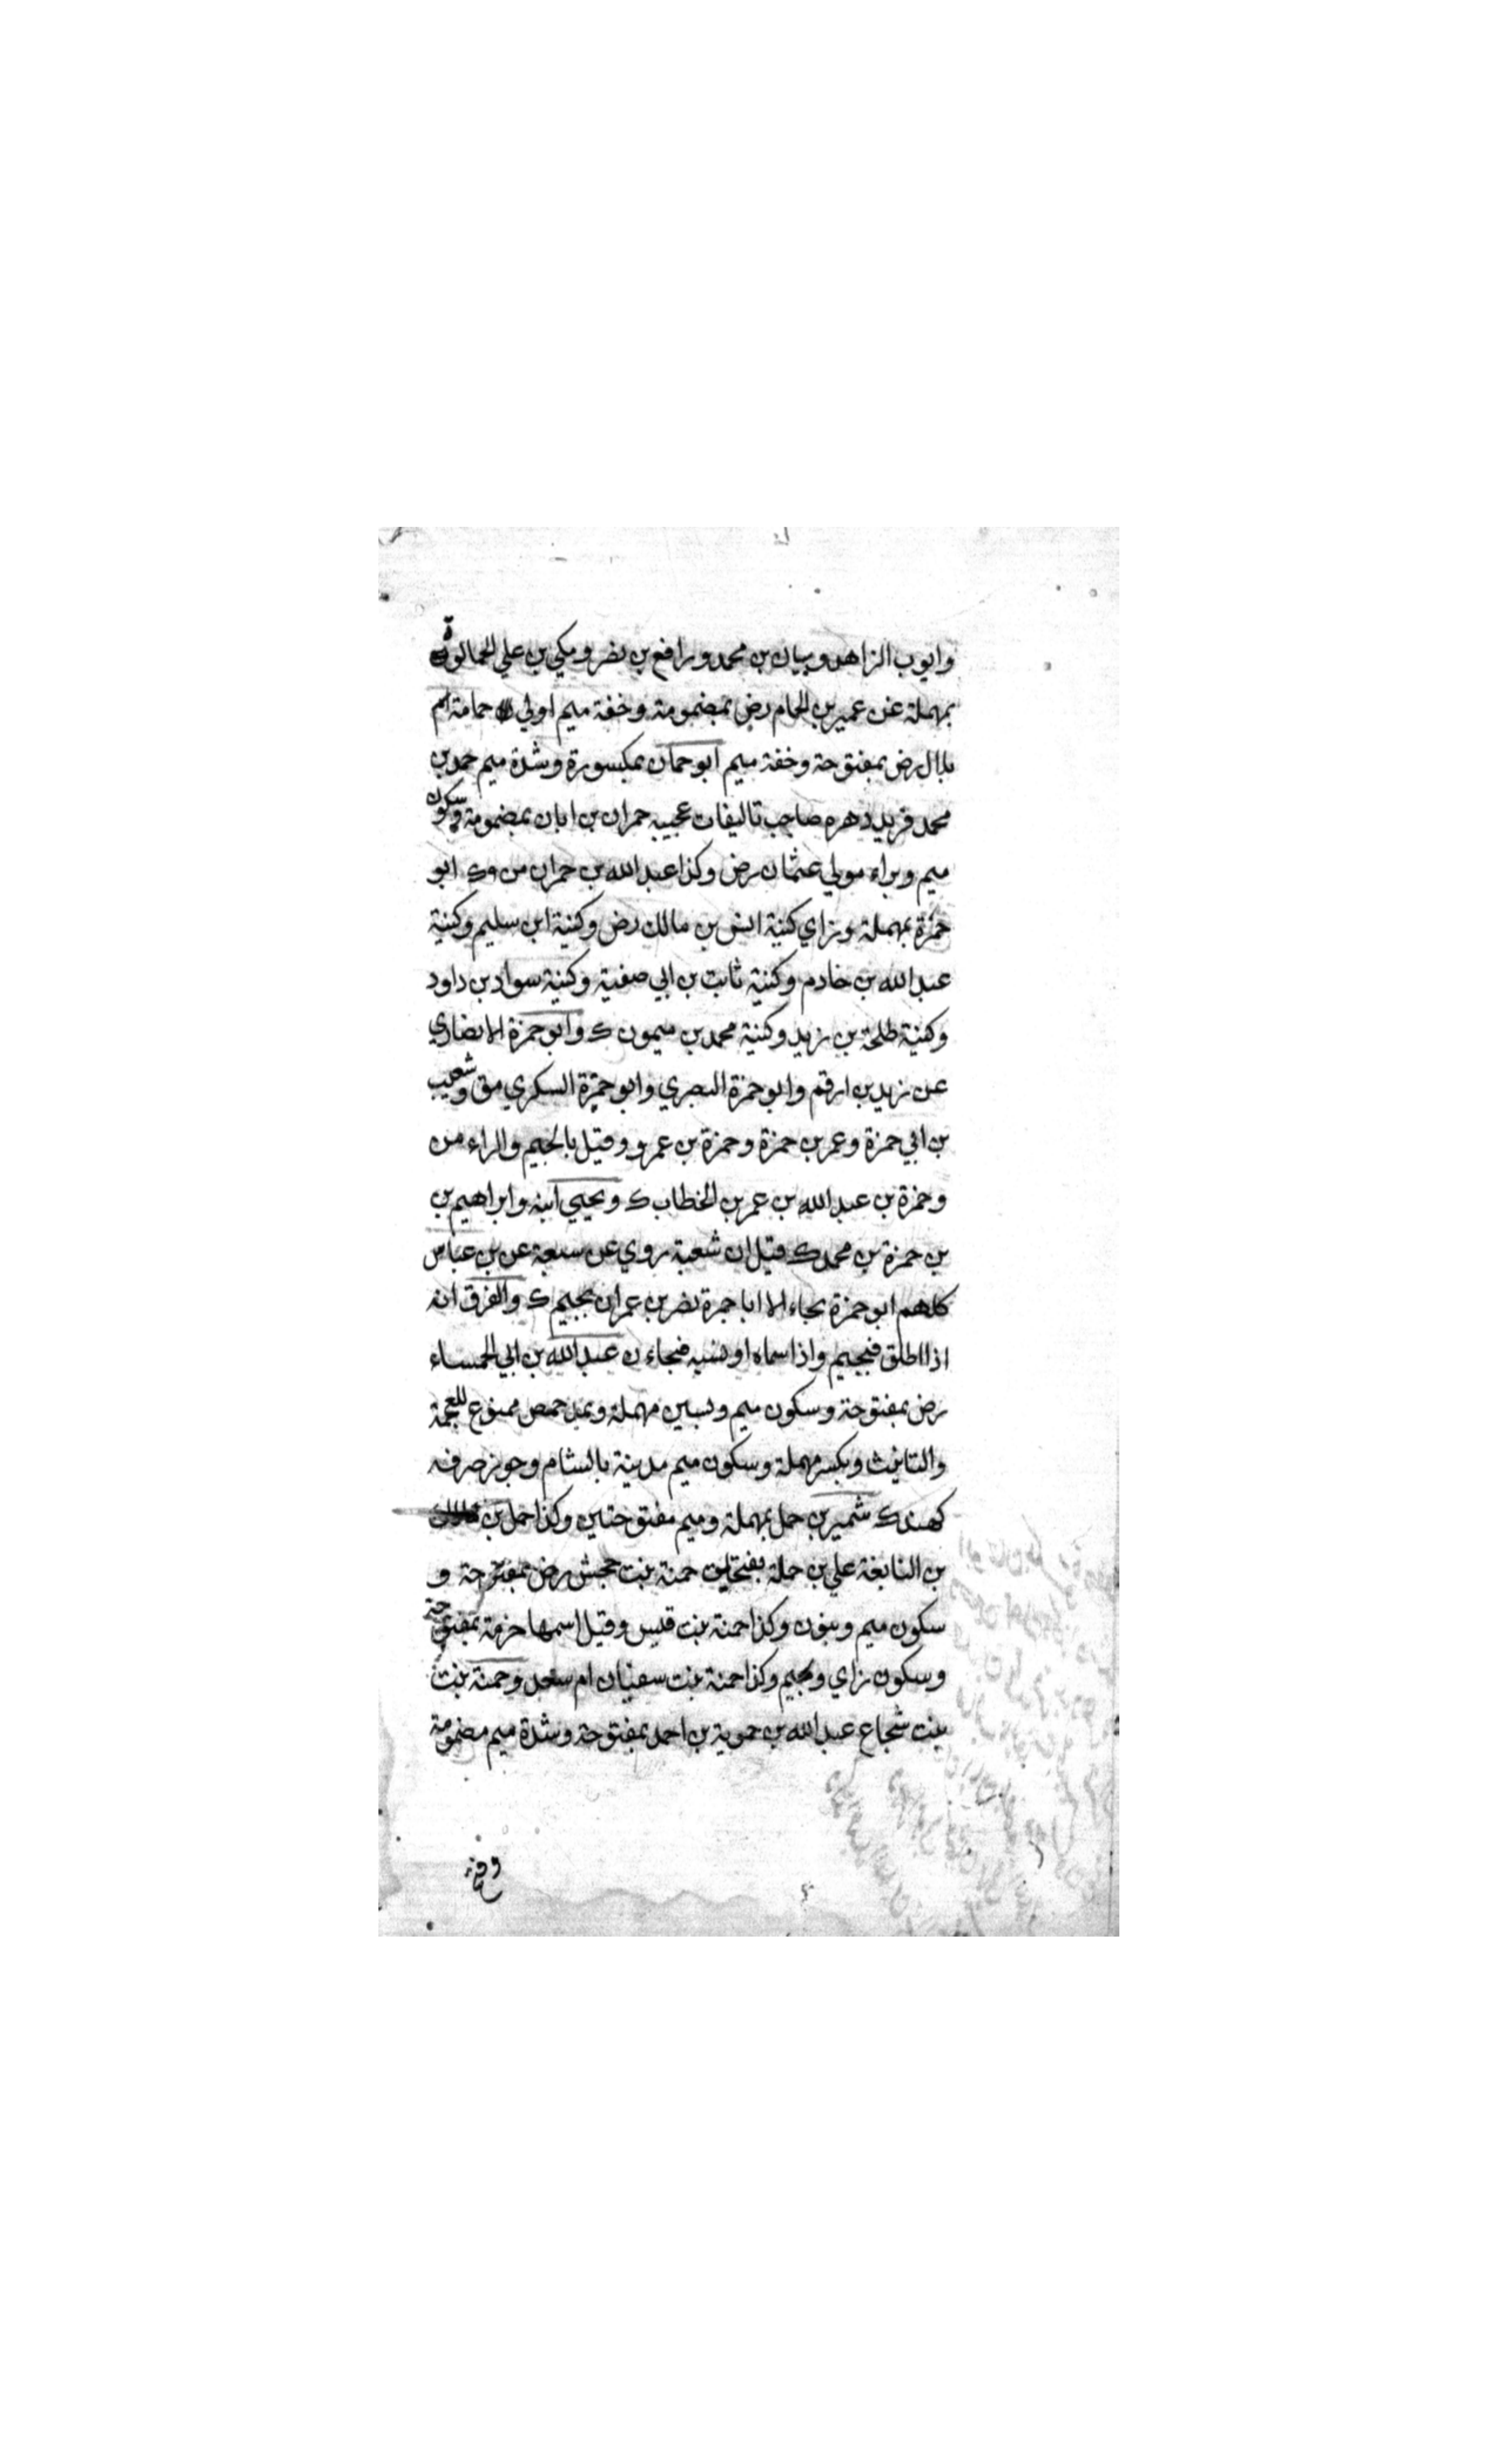 وايوب الزاهد وبيان بن محمد ورافع بن نصر ومكي بن علي الحمالون
بمهملة عن عمير بن الحمام رض بمضمومة وخفة ميم اولي حمامة ام
بلال رض بمفتوحة وخفة ميم ابو حمان بمكسورة وشدة ميم حمد بن
محمد فريد دهره صاحب تاليفات عجيبه حمران بن ابان بمضمومة وسكون
ميم وبراء مولي عثمان رض وكذا عبد الله بن حمران من وك ابو
حمزة بمهملة وزاي كنية انس بن مالك رض وكنية ابن سليم وكنية
عبد الله بن خادم وكنية ثابت بن ابي صفية وكنية سوار بن داود
وكنية طلحة بن زيد وكنية محمد بن ميمون ك وابو حمزة الانصاري
عن زيد بن ارقم وابو حمزة البصري وابو حمزة السكري مق وشعيب
بن ابي حمزة وعمر بن حمزة وحمزة بن عمرو وقيل بالجيم والراء من
وحمزة بن عبد الله بن عمر بن الخطاب ك ويحيي ابنه وابراهيم بن
بن حمزة بن محمد ك قيل ان شعبة روي عن سبعة عن بن عباس
كلهم ابو حمزة بحاء الا ابا جمرة نصر بن عمران بجيم ك والفرق انه
اذا اطلق فبجيم واذا سماه او نسبه فبحاء ن عبد الله بن ابي الحمساء
رض بمفتوحة وسكون ميم وبسين مهملة وبمد حمص ممنوع للعجمة
والتانيث وبكسر مهملة وسكون ميم مدينة بالشام وجوز صرفه
كهند ك شمير بن حمل بمهملة وميم مفتوحتين وكذا حمل بن
بن النابغة علي بن حملة بفتحتين حمنة بنت جحش رض بمفتوحة و
سكون ميم وبنون وكذا حمنة بنت قيس وقيل اسمها حزمة بمفتوحة
وسكون زاي وبجيم وكذا حمنة بنت سفيان ام سعد وحمنة بنت
بنت شجاع عبد الله بن حموية بن احمد بمفتوحة وشدة ميم مضمومة